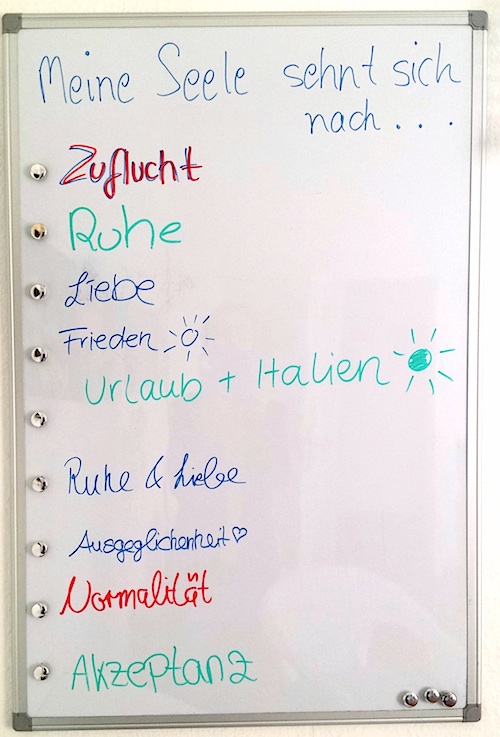 Meine Seele sehnt sich
nach . . .
Zuflucht
Ruhe
Liebe
Frieden
Urlaub + Italien
Ruhe & Liebe
Ausgeglichenheit♡
Normalität
Akzeptanz